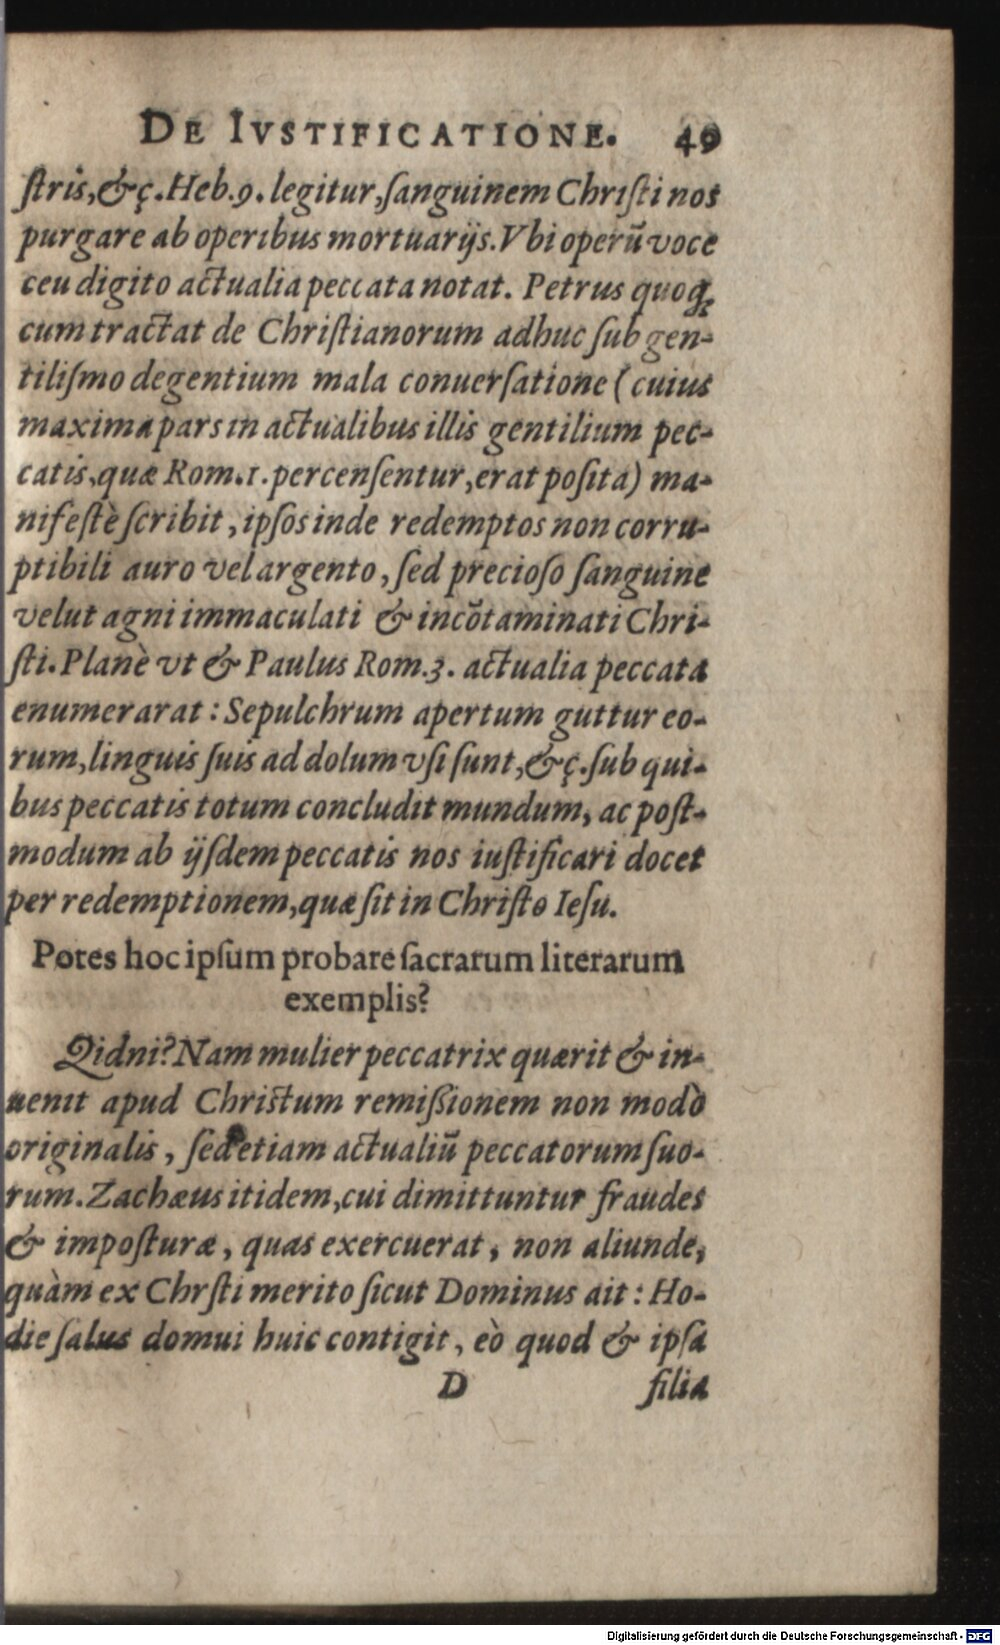 DE IVSTIFICATIONE. 49
ſtris, &ç. Heb. 9. legitur, ſanguinem Chriſti nos
purgare ab operibus mortuarijs. Vbi operũ voce
ceu digito actualia peccata notat. Petrus quoq;
cum tractat de Chriſtianorum adhuc ſub gen-
tiliſmo degentium mala conuerſatione (cuius
maxima pars in actualibus illis gentilium pec-
catis, quæ Rom. 1. percenſentur, erat poſita) ma-
nifeſtè ſcribit, ipſos inde redemptos non corru-
ptibili auro vel argento, ſed precioſo ſanguine
velut agni immaculati & incõtaminati Chri-
ſti. Planè vt & Paulus Rom. 3. actualia peccata
enumerarat: Sepulchrum apertum guttur eo-
rum, linguis ſuis ad dolum vſi ſunt, &ç. ſub qui-
bus peccatis totum concludit mundum, ac poſt-
modum ab ijſdem peccatis nos iuſtificari docet
per redemptionem, quæ ſit in Chriſto Ieſu.
Potes hoc ipſum probare ſacrarum literarum
exemplis?
Qidni? Nam mulier peccatrix quærit & in-
uenit apud Chriſtum remiſsionem non modò
originalis, ſed etiam actualiũ peccatorum ſuo-
rum. Zachæus itidem, cui dimittuntur fraudes
& impoſturæ, quas exercuerat, non aliunde,
quàm ex Chrſti merito ſicut Dominus ait: Ho-
die ſalus domui huic contigit, eò quod & ipſa
D filia
Digitalisierung gefördert durch die Deutsche Forschungsgemeinschaft - DFG